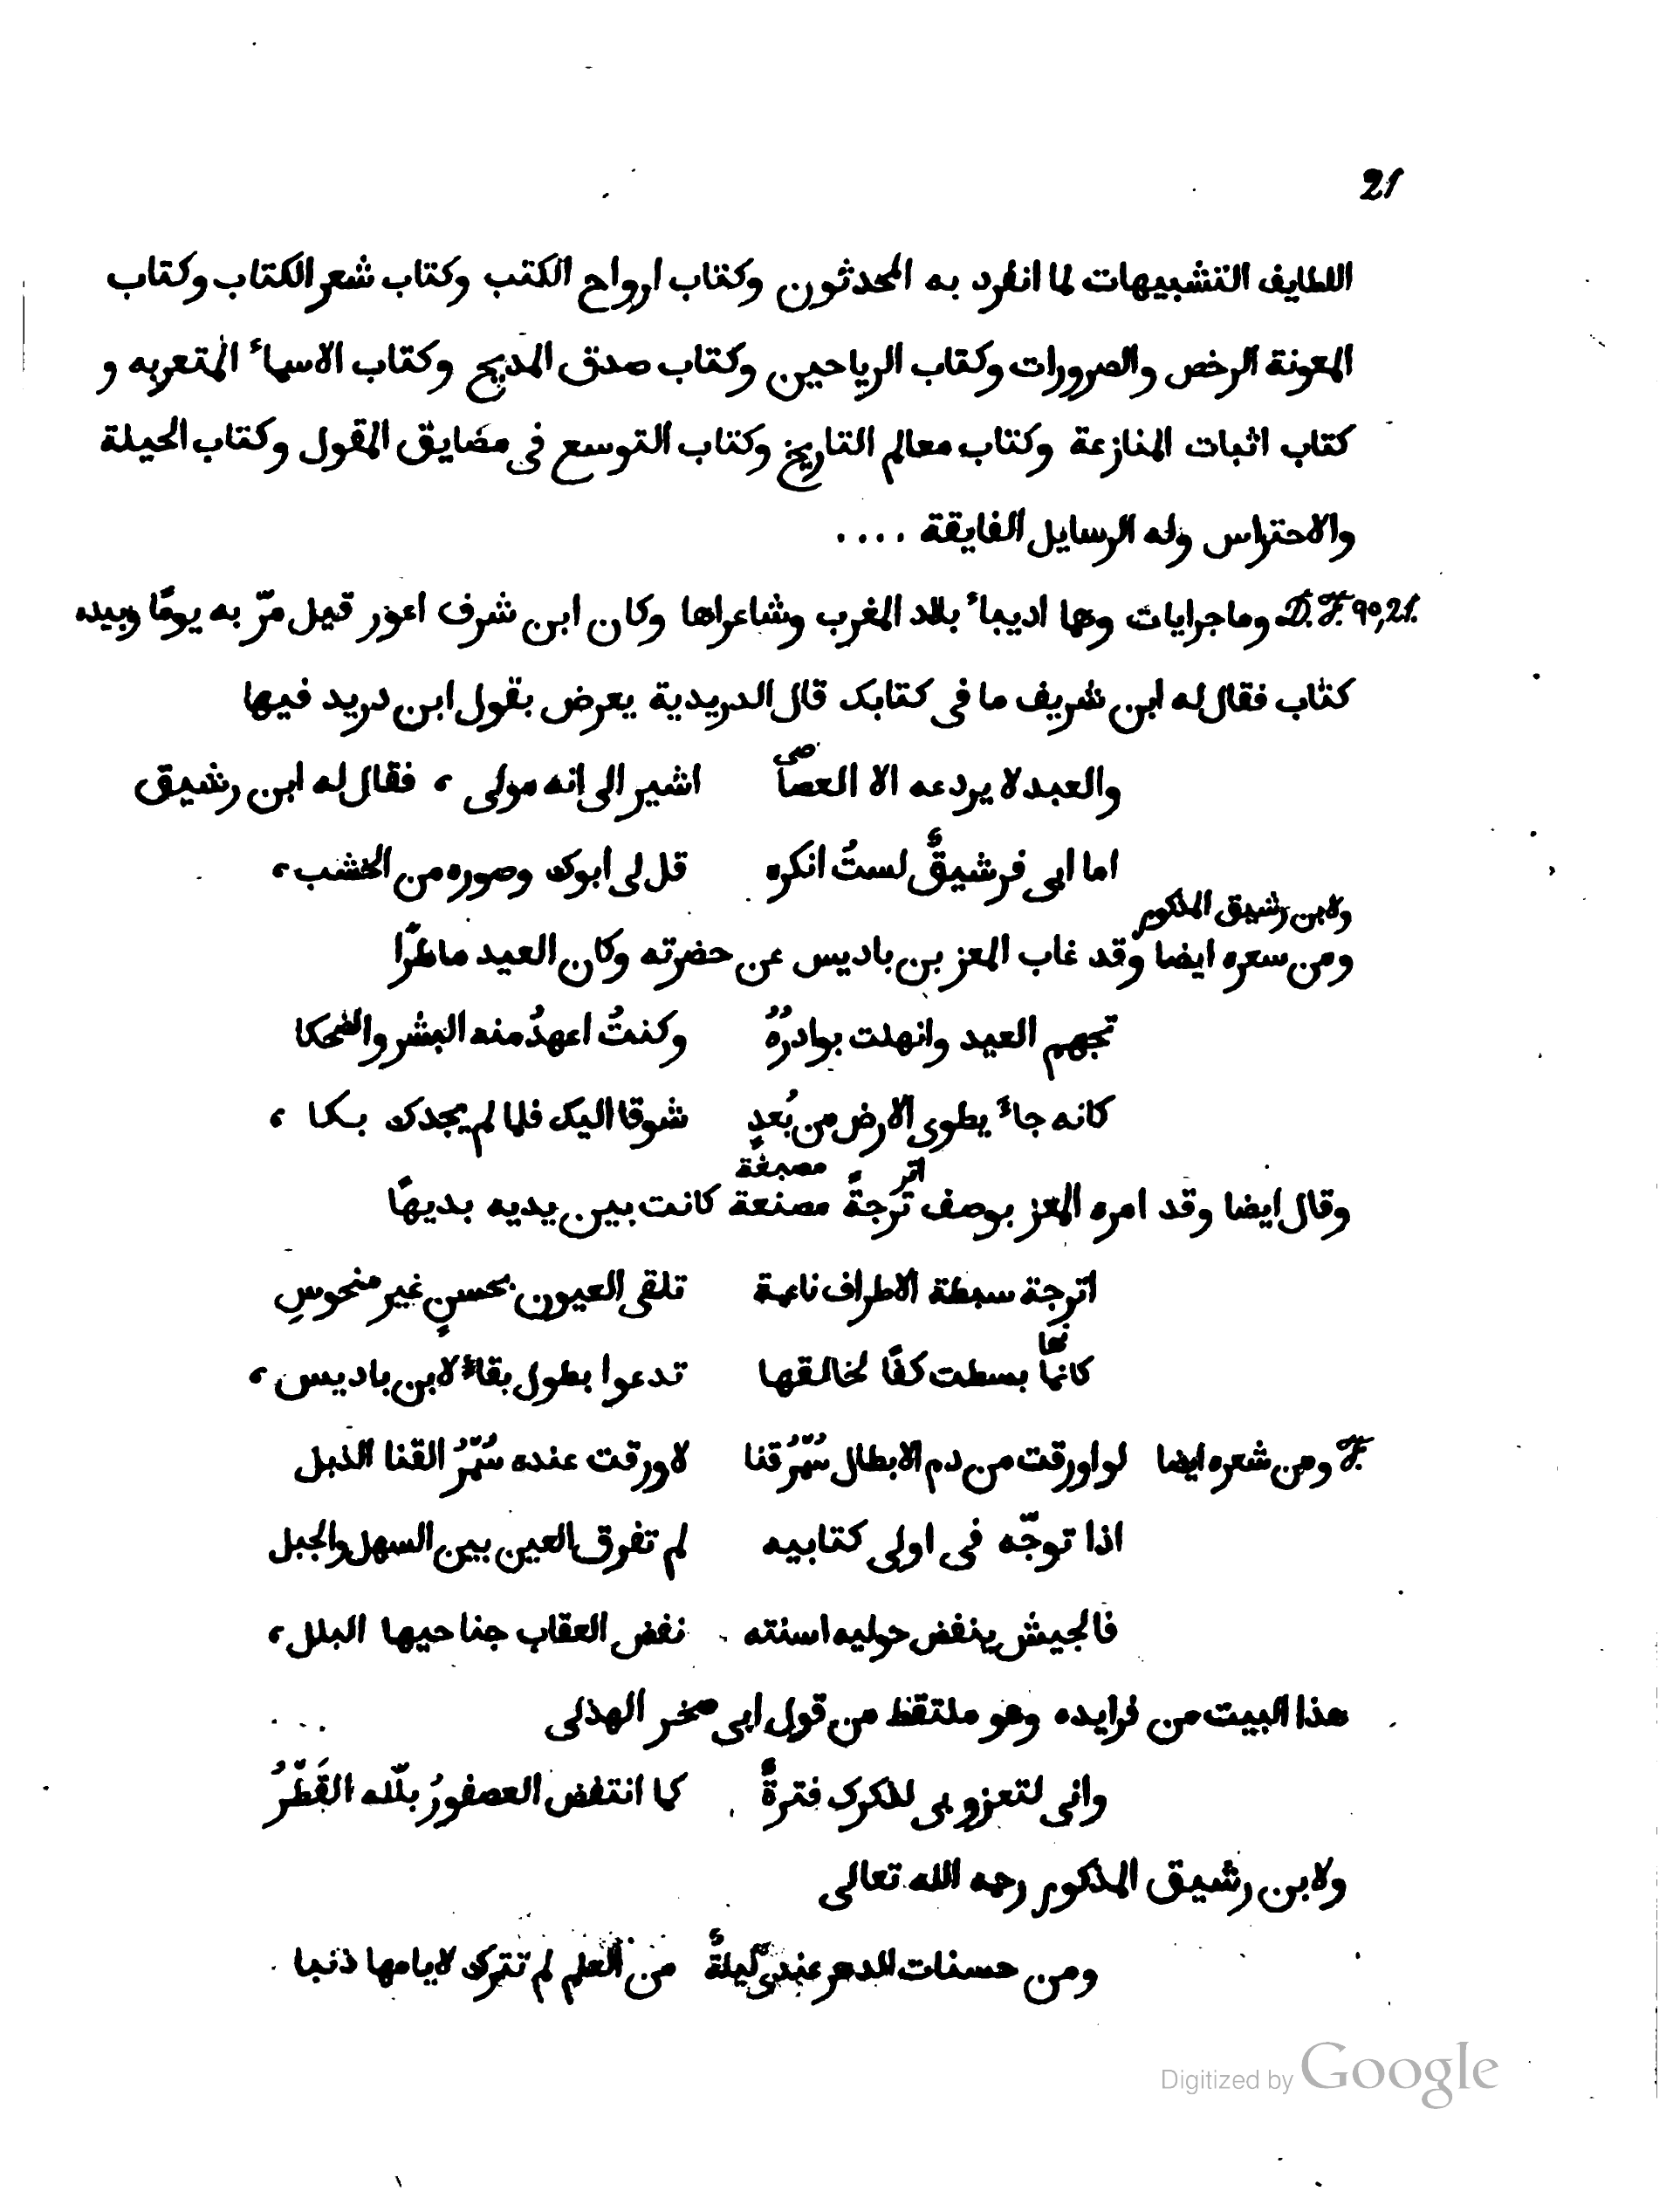 21
اللطايف التشبيهات لما انفرد به المحدثون وكتاب ارواح الكتب وكتاب شعر الكتاب وكتاب
المعونة الرخص والضرورات وكتاب الرياحين وكتاب صدق المديح وكتاب الاسماء المتعربه و
كتاب اثبات المنازعة وكتاب معالم التاريخ وكتاب التوسع فى مضايق القول وكتاب الحيلة
والاحتراس وله الرسايل الفايقة ....
D. F. 90,21. وماجرايات وهما اديبا بلاد المغرب وشاعراها وكان ابن شرف اعور قيل مرّ به يومًا وبيده
كتاب فقال له ابن شريف ما فى كتابك قال الدريدية يعرض بقول ابن دريد فيها
والعبد لا يردعه الا العصا صى اشير الى انه مولى ، فقال له ابن رشيق
اما ابى فرشيقٌ لستُ انكره قل لى ابوك وصوره من الخشب ،
ولابن رشيق المذكور
ومن سعره ايضا وقد غاب المعز بن باديس عن حضرته وكان العيد ماطرًا
تجهم العيد وانهلت بوادرُهُ وكنتُ اعهدُ منه البشر والضحكا
كانه جاء يطوى الارض من بُعدٍ شوقا اليك فلما لم يجدك بكا ،
اتر مصبغة
وقال ايضا وقد امره المعز بوصف ترجةً مصنعة كانت بين يديه بديهًا
اترجة سبطة الاطراف ناعمة تلقى العيون بحسنٍ غير منحوسِ
نها
كانما بسطت كفًا لخالقها تدعوا بطول بقاء لابن باديس ،
F. ومن شعره ايضا لو اورقت من دم الابطال سُمْرُ قنا لاورقت عنده سُمْرُ القنا الذبل
اذا توجّه فى اولى كتابيه لم تفرق العين بين السهل والجبل
فالجيش ينفض حوليه اسنته نفض العقاب جناحيها البلل ،
هذا البيت من فرايده وهو ملتقظ من قول ابى صخر الهذلى ...
وانى لتعزو بى لذكرك فترةً كما انتفض العصفورُ بلّله القَطْرُ
ولابن رشيق المذكور رحمه الله تعالى
ومن حسنات الدهر عندى ليلةٌ من العلم لم تترك لايامها ذنبا
Digitized by Google